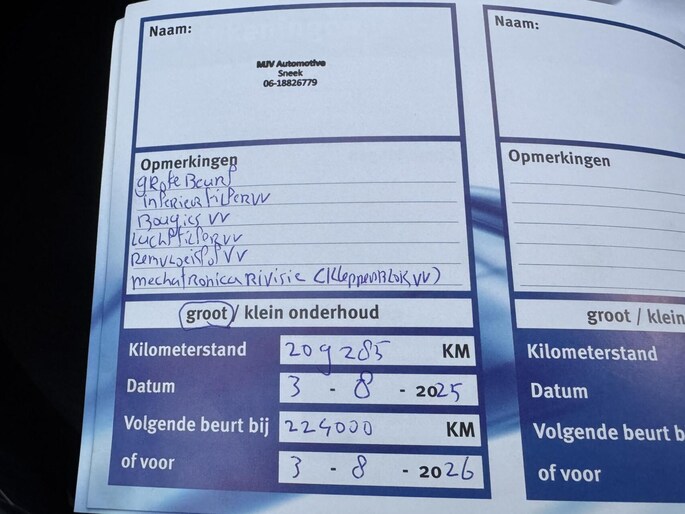 Naam:
MJV Automotive
Sneek
06-18826779
Opmerkingen
grote Beurt
interieurfilter VV
Bougies VV
Luchtfilter VV
Remvloeistof VV
mechatronica Rivisie (KleppenBlok VV)
groot / klein onderhoud
Kilometerstand 209285 KM
Datum 3 - 8 - 2025
Volgende beurt bij 224000 KM
of voor 3 - 8 - 2026
Naam:
Opmerkingen
groot / klein
Kilometerstand
Datum
Volgende beurt b
of voor